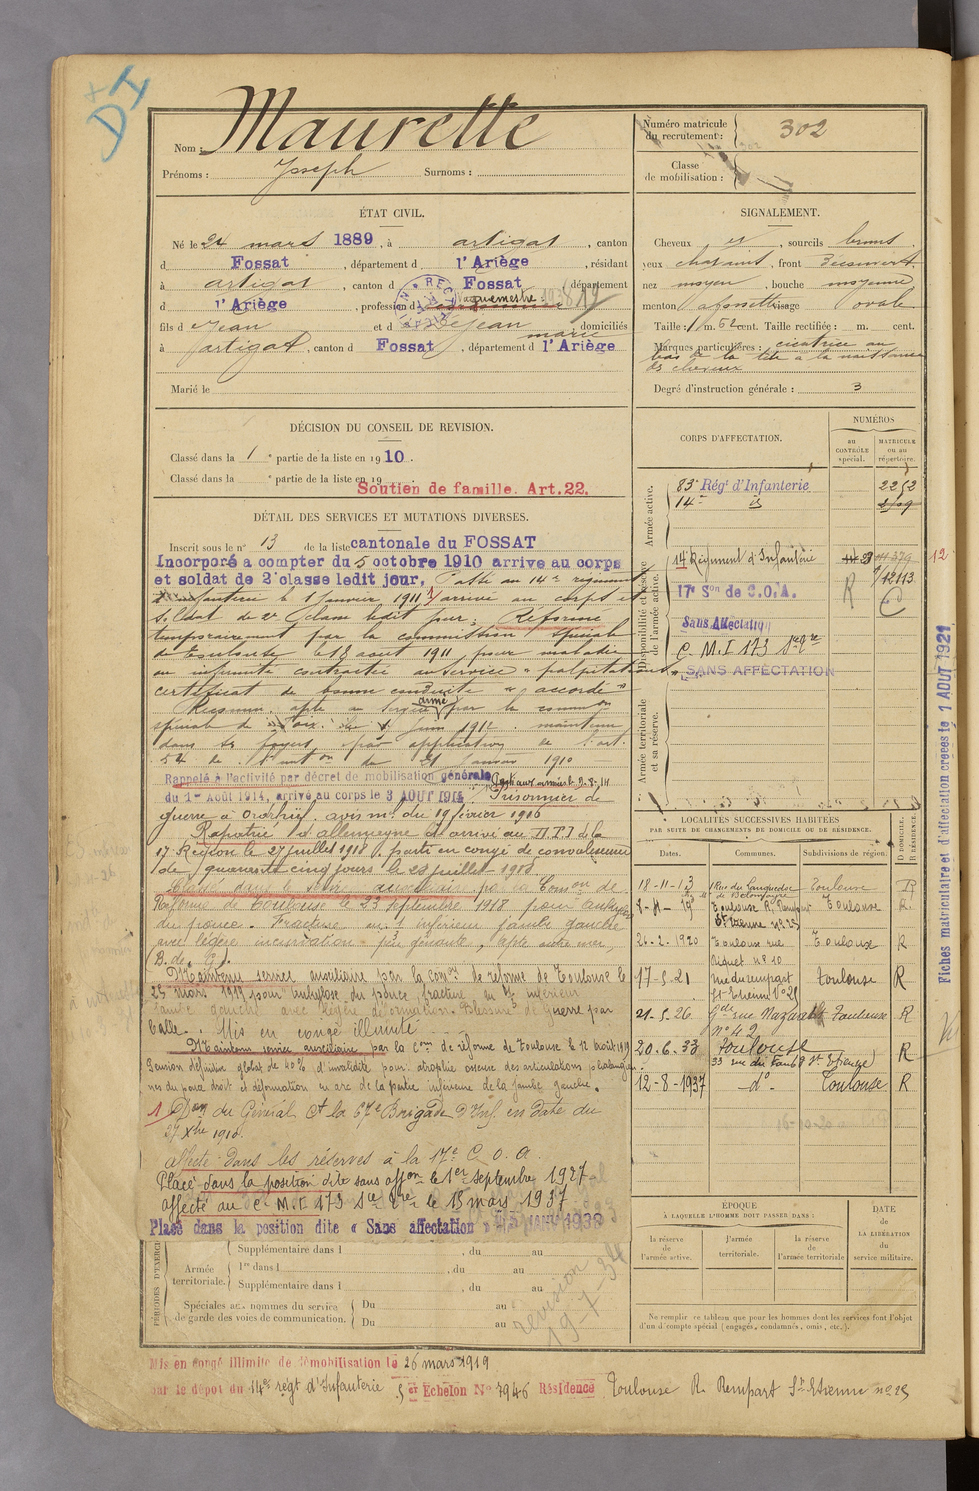 DI
Nom : Maurette
Prénoms : Joseph Surnoms :
Numéro matricule du recrutement : 302
Classe de mobilisation :
ÉTAT CIVIL.
Né le 24 mars 1889, à artigat, canton
d Fossat, département d l'Ariège, résidant
à artigat, canton d Fossat, département
d l'Ariège, profession d
fils d Jean et d Jean marie, domiciliés
à artigat, canton d Fossat, département d l'Ariège
Marié le
SIGNALEMENT.
Cheveux et, sourcils bruns.
yeux chatains, front découvert,
nez moyen, bouche moyenne
menton à fossette visage ovale
Taille : 1 m. 62 cent. Taille rectifiée : m. cent.
Marques particulières : cicatrice au
bas de la tête à la naissance
des cheveux
Degré d'instruction générale : 3
DÉCISION DU CONSEIL DE REVISION.
Classé dans la 1e partie de la liste en 1910.
Classé dans la e partie de la liste en 19
Soutien de famille. Art. 22.
DÉTAIL DES SERVICES ET MUTATIONS DIVERSES.
Inscrit sous le n° 13 de la liste cantonale du FOSSAT
Incorporé a compter du 5 octobre 1910 arrivé au corps
et soldat de 2e classe ledit jour. Passé au 14e régiment
d'infanterie le 1 janvier 1911 arrivé au corps et
soldat de 2e classe ledit jour. Réformé
temporairement par la commission spéciale
de Toulouse le 18 aout 1911 pour maladie
ou infirmité contractée au service « palpitations »
certificat de bonne conduite « accordé »
Reconnu apte au service armé par la common
spéciale de Foix le juin 1912 maintenu
dans ses foyers par application de l'art.
54 de l'inston du 21 janvier 1910
Rappelé à l'activité par décret de mobilisation générale
du 1er Août 1914, arrivé au corps le 3 AOUT 1914 Prisonnier de
guerre à Ohrdruf. avis m. du 19 février 1916
Rapatrié d'allemagne et arrivé au D.P.I de la
17e Région le 27 juillet 1918. parti en congé de convalescence
de quarante cinq jours le 28 juillet 1918
Classé dans le service auxiliaire par la Comon de
Réforme de Toulouse le 23 septembre 1918 pour ankylose
du pouce. Fracture inférieur jambe gauche
avec légère incurvation peu gênante, apte
Maintenu service auxiliaire par la comon de réforme de Toulouse le
25 mars 1919 pour ankylose du pouce, fracture inférieur
jambe gauche avec légère déformation. Blessure de Guerre par
balle. Mis en congé illimité
Maintenu service auxiliaire par la Com de réforme de Toulouse le 12 Août 1919
Pension définitive global de 40% d'invalidité pour : atrophie osseuse des articulations phalangien
nes du pouce droit et déformation en arc de la partie inférieure de la jambe gauche.
1 Don du Général Ct la 67e Brigade d'Inf. en date du
27 Xbre 1910.
affecté dans les réserves à la 17e C O A.
Placé dans la position dite sans affon le 1er septembre 1927
affecté au C. M. I 173 le 15 mars 1937
Placé dans la position dite « Sans affectation » 1938
CORPS D'AFFECTATION.
NUMÉROS
au CONTRÔLE spécial.
MATRICULE ou au répertoire.
Armée active.
83e Régt d'Infanterie 2252
14e
Disponibilité et réserve de l'armée active.
14 Régiment d'Infanterie
17e Son de C.O.A.
Sans Affectation
C. M. I 173
SANS AFFECTATION
Armée territoriale et sa réserve.
12
Fiches matriculaire et d'affectation créées le 1 AOUT 1921
LOCALITÉS SUCCESSIVES HABITÉES
PAR SUITE DE CHANGEMENTS DE DOMICILE OU DE RÉSIDENCE.
Dates. Communes. Subdivisions de région. D DOMICILE. R RÉSIDENCE.
18-11-13 Rue du Languedoc Toulouse R
Toulouse R. Rempart St Etienne n° 25 Toulouse R.
26-2-1920 Toulouse rue Riquet n° 10 Toulouse R
17-5-21 rue du rempart St Etienne N° 25 Toulouse R
21-5-26 Gde rue Nazareth N° 42 Toulouse R
20.6.33 Toulouse R
12-8-1937 -do- Toulouse R
ÉPOQUE
À LAQUELLE L'HOMME DOIT PASSER DANS :
la réserve de l'armée active.
l'armée territoriale.
la réserve de l'armée territoriale
DATE de LA LIBÉRATION du service militaire.
Ne remplir ce tableau que pour les hommes dont les services font l'objet
d'un décompte spécial (engagés, condamnés, omis, etc.).
PÉRIODES D'EXERCI
Supplémentaire dans l , du au
Armée territoriale.
1re dans l , du au
Supplémentaire dans l , du au
Spéciales aux hommes du service
de garde des voies de communication.
Du au
Du au
revision
Mis en congé illimité de démobilisation le 26 mars 1919
par le dépot du 14e régt d'Infanterie 5er Echelon N° 7946 Résidence Toulouse R. Rempart St Etienne n° 25